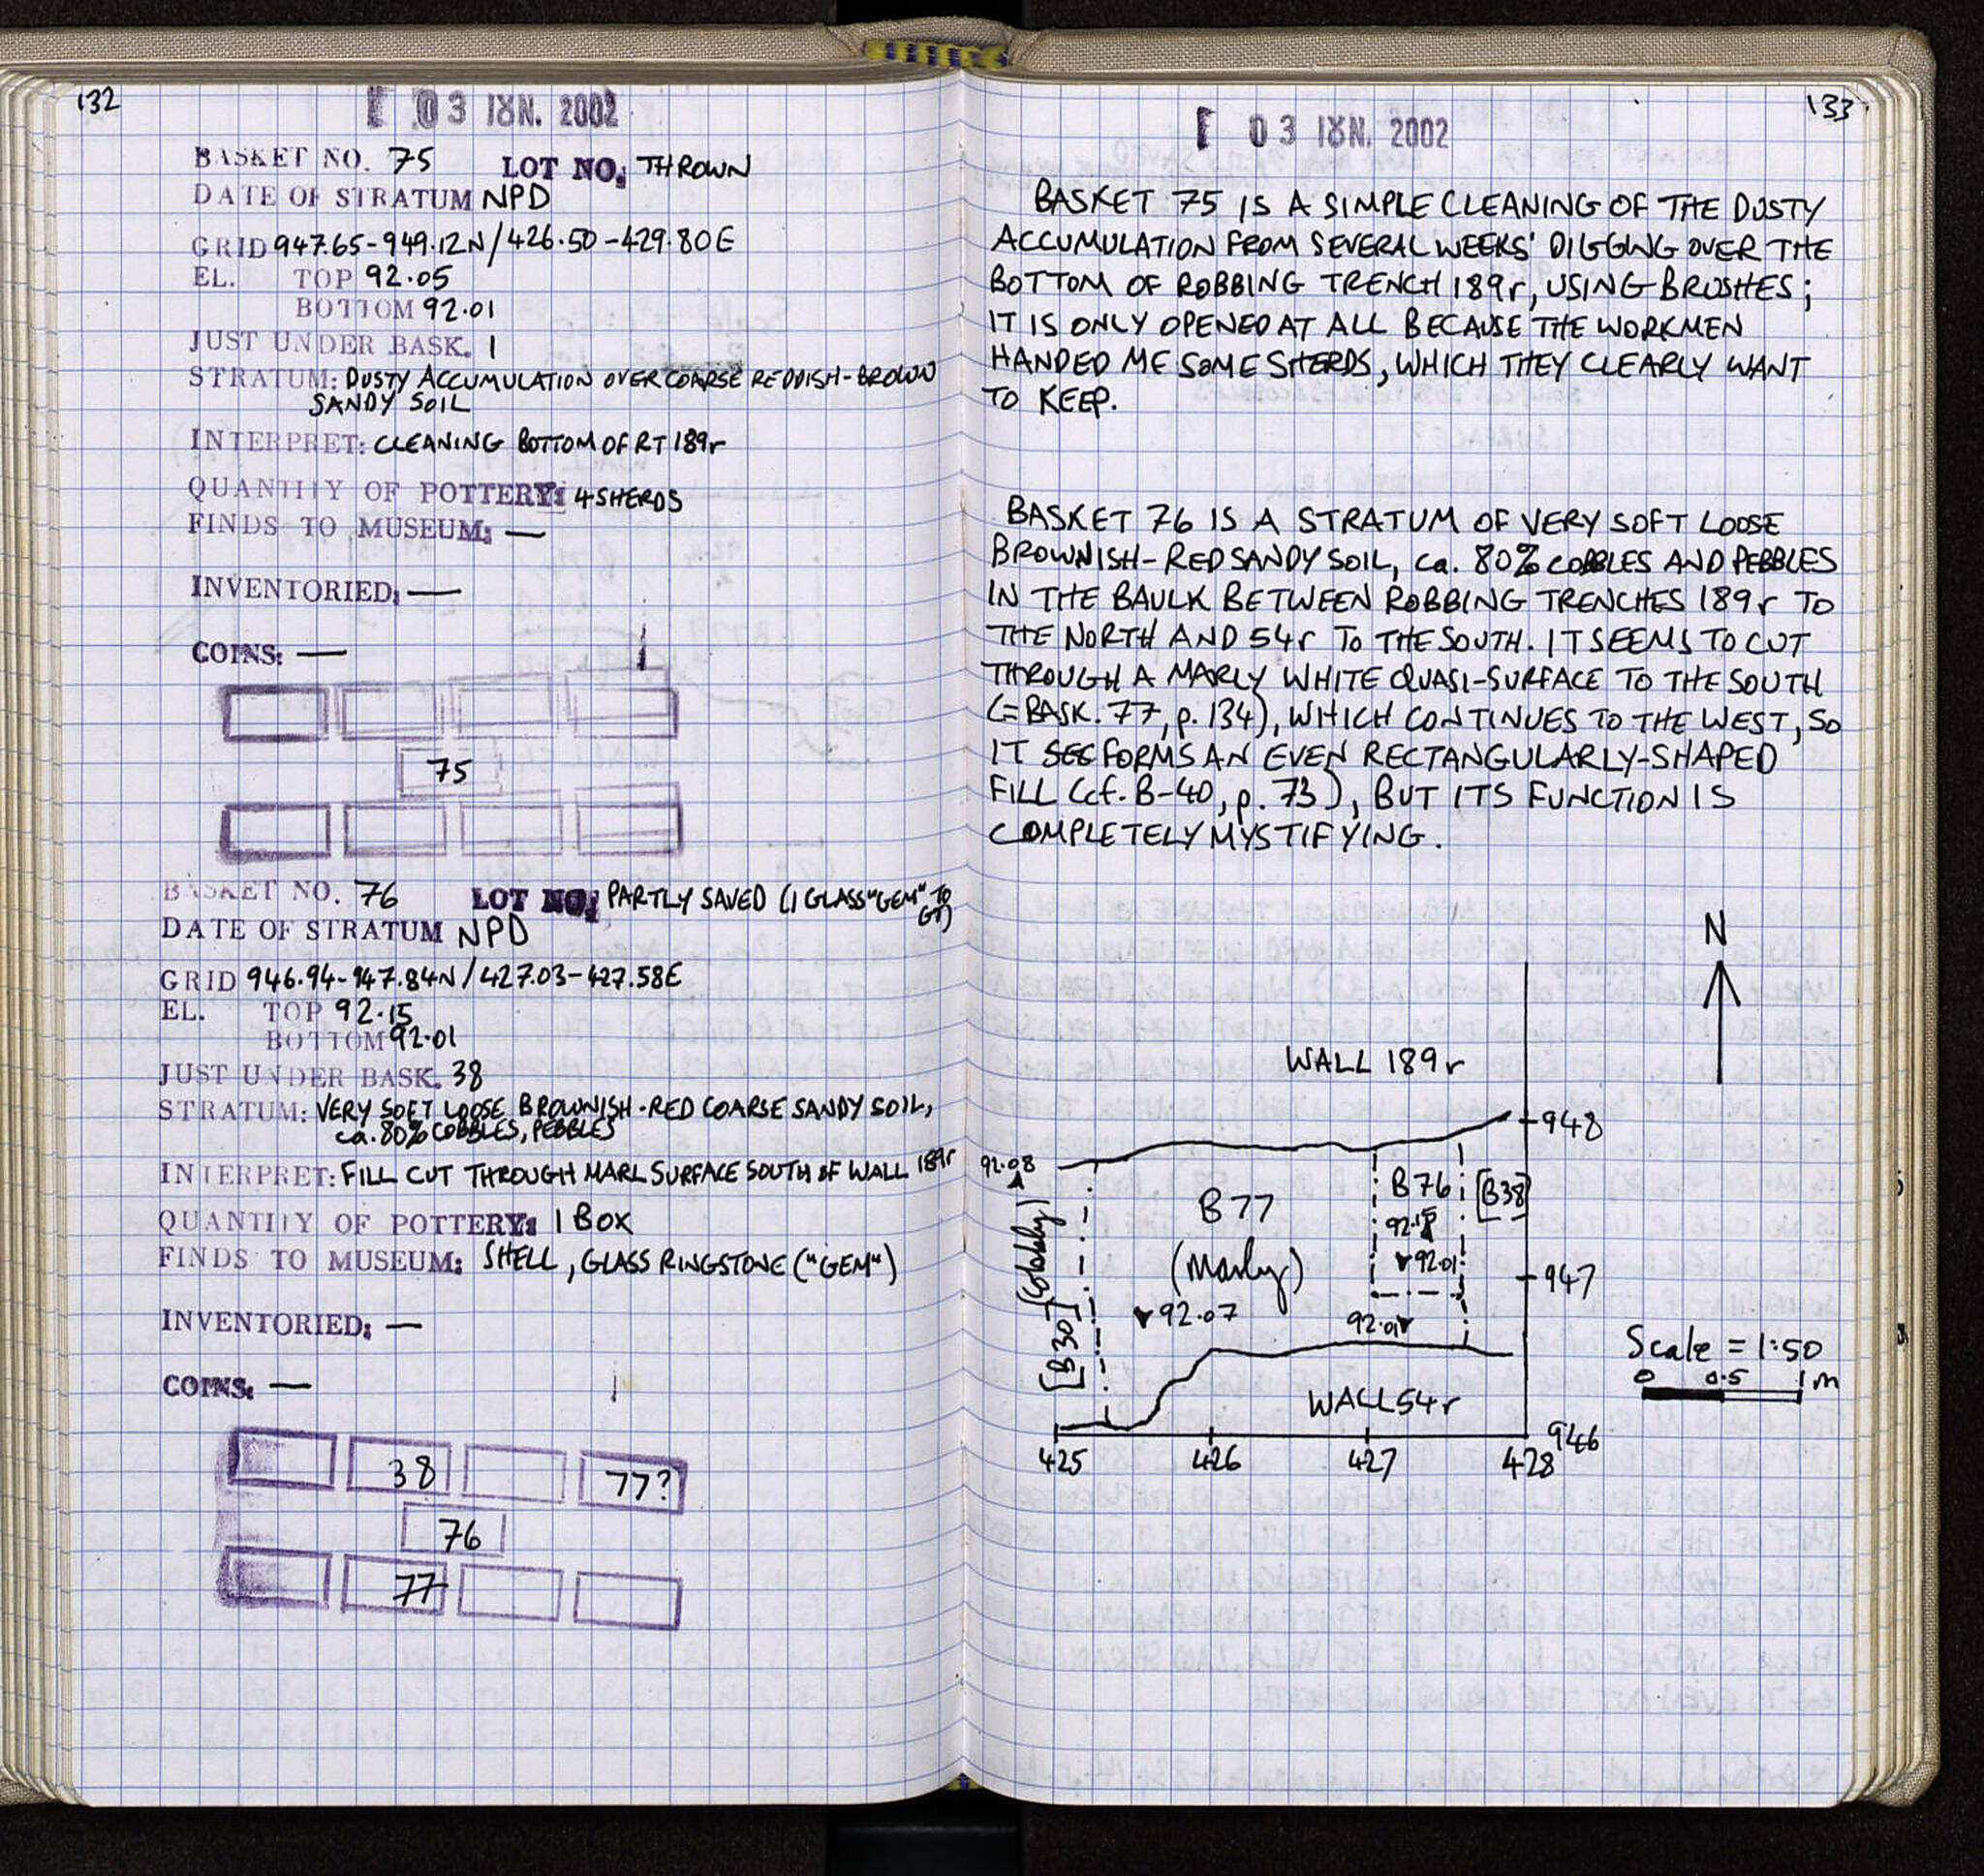 132
03 ΙΟΥΝ. 2002
BASKET NO. 75 LOT NO: THROWN
DATE OF STRATUM NPD
GRID 947.65-949.12N/426.50-429.80E
EL. TOP 92.05
BOTTOM 92.01
JUST UNDER BASK. 1
STRATUM: DUSTY ACCUMULATION OVER COARSE REDDISH-BROWN
SANDY SOIL
INTERPRET: CLEANING BOTTOM OF RT 189r
QUANTITY OF POTTERY: 4 SHERDS
FINDS TO MUSEUM: —
INVENTORIED: —
COINS: —
75
BASKET NO. 76 LOT NO: PARTLY SAVED (1 GLASS "GEM" TO
GT)
DATE OF STRATUM NPD
GRID 946.94-947.84N/427.03-427.58E
EL. TOP 92.15
BOTTOM 92.01
JUST UNDER BASK. 38
STRATUM: VERY SOFT LOOSE BROWNISH-RED COARSE SANDY SOIL,
ca. 80% COBBLES, PEBBLES
INTERPRET: FILL CUT THROUGH MARL SURFACE SOUTH OF WALL 189r
QUANTITY OF POTTERY: 1 BOX
FINDS TO MUSEUM: SHELL, GLASS RINGSTONE ("GEM")
INVENTORIED: —
COINS: —
38 77?
76
77
133
03 ΙΟΥΝ. 2002
BASKET 75 IS A SIMPLE CLEANING OF THE DUSTY
ACCUMULATION FROM SEVERAL WEEKS' DIGGING OVER THE
BOTTOM OF ROBBING TRENCH 189r, USING BRUSHES;
IT IS ONLY OPENED AT ALL BECAUSE THE WORKMEN
HANDED ME SOME SHERDS, WHICH THEY CLEARLY WANT
TO KEEP.
BASKET 76 IS A STRATUM OF VERY SOFT LOOSE
BROWNISH-RED SANDY SOIL, ca. 80% COBBLES AND PEBBLES
IN THE BAULK BETWEEN ROBBING TRENCHES 189r TO
THE NORTH AND 54r TO THE SOUTH. IT SEEMS TO CUT
THROUGH A MARLY WHITE QUASI-SURFACE TO THE SOUTH
(=BASK. 77, p. 134), WHICH CONTINUES TO THE WEST, SO
IT FORMS AN EVEN RECTANGULARLY-SHAPED
FILL (cf. B-40, p. 73), BUT ITS FUNCTION IS
COMPLETELY MYSTIFYING.
N
WALL 189r
948
92.08
B77
B76
[B38]
92.15
(Marly)
92.01
947
[B30] (cobbly)
92.07
92.01
Scale = 1:50
0 0.5 1 m
WALL 54r
946
425 426 427 428